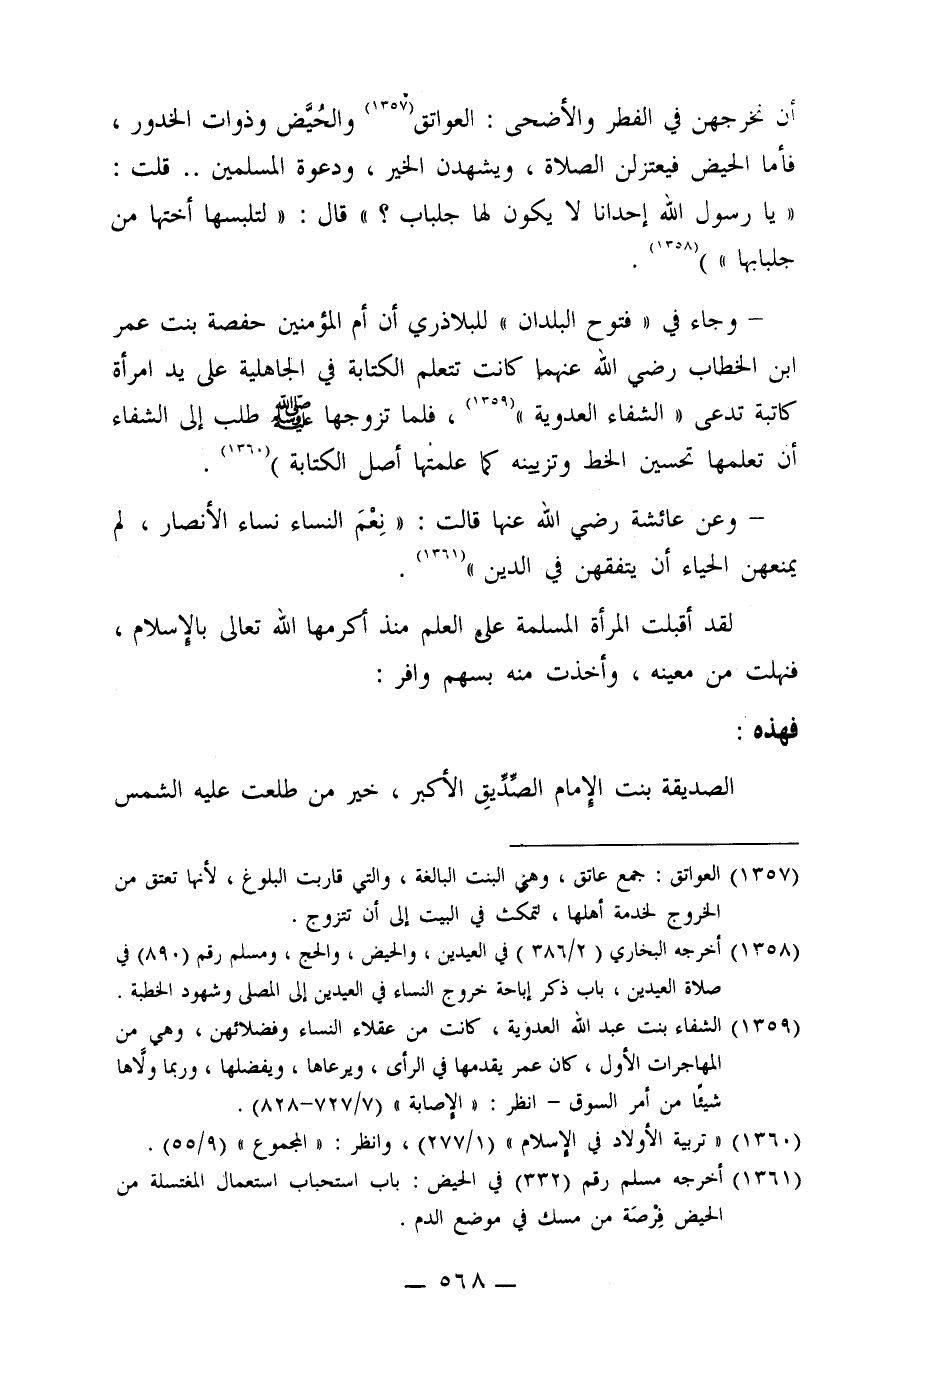 أن نخرجهن في الفطر والأضحى : العواتق(١٣٥٧) والحُيَّض وذوات الخدور ،
فأما الحيض فيعتزلن الصلاة ، ويشهدن الخير ، ودعوة المسلمين .. قلت :
« يا رسول الله إحدانا لا يكون لها جلباب ؟ » قال : « لتلبسها أختها من
جلبابها » )(١٣٥٨) .
– وجاء في « فتوح البلدان » للبلاذري أن أم المؤمنين حفصة بنت عمر
ابن الخطاب رضي الله عنهما كانت تتعلم الكتابة في الجاهلية على يد امرأة
كاتبة تدعى « الشفاء العدوية »(١٣٥٩) ، فلما تزوجها ﷺ طلب إلى الشفاء
أن تعلمها تحسين الخط وتزيينه كما علمتها أصل الكتابة )(١٣٦٠) .
– وعن عائشة رضي الله عنها قالت : « نِعْمَ النساء نساء الأنصار ، لم
يمنعهن الحياء أن يتفقهن في الدين »(١٣٦١) .
لقد أقبلت المرأة المسلمة على العلم منذ أكرمها الله تعالى بالإسلام ،
فنهلت من معينه ، وأخذت منه بسهم وافر :
فهذه :
الصديقة بنت الإمام الصِّدِّيقِ الأكبر ، خير من طلعت عليه الشمس
(١٣٥٧) العواتق : جمع عاتق ، وهي البنت البالغة ، والتي قاربت البلوغ ، لأنها تعتق من
الخروج لخدمة أهلها ، لتمكث في البيت إلى أن تتزوج .
(١٣٥٨) أخرجه البخاري ( ٣٨٦/٢ ) في العيدين ، والحيض ، والحج ، ومسلم رقم (٨٩٠) في
صلاة العيدين ، باب ذكر إباحة خروج النساء في العيدين إلى المصلى وشهود الخطبة .
(١٣٥٩) الشفاء بنت عبد الله العدوية ، كانت من عقلاء النساء وفضلائهن ، وهي من
المهاجرات الأول ، كان عمر يقدمها في الرأى ، ويرعاها ، ويفضلها ، وربما ولَّاها
شيئًا من أمر السوق – انظر : « الإصابة » (٧٢٧/٧–٨٢٨) .
(١٣٦٠) « تربية الأولاد في الإسلام » (٢٧٧/١) ، وانظر : « المجموع » (٥٥/٩) .
(١٣٦١) أخرجه مسلم رقم (٣٣٢) في الحيض : باب استحباب استعمال المغتسلة من
الحيض فِرْصَة من مسك في موضع الدم .
— ٥٦٨ —